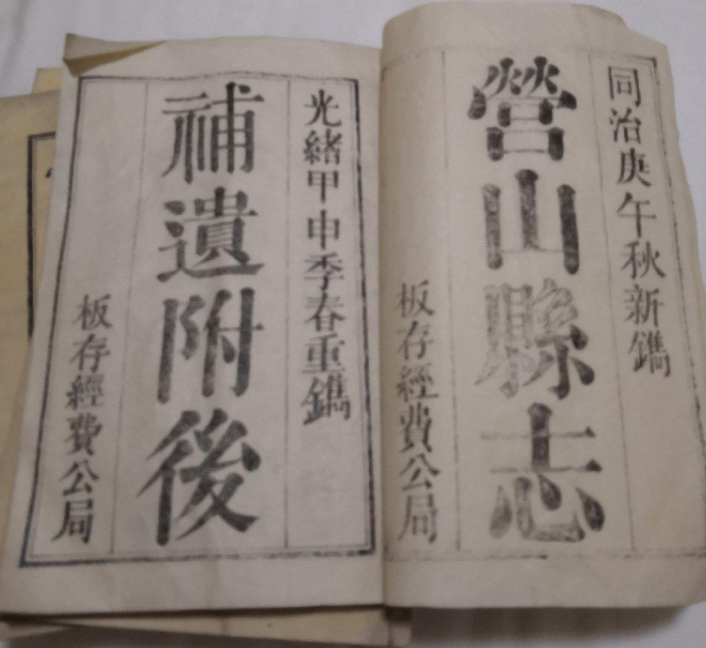 同治庚午秋新鐫
營山縣志
板存經費公局
光緒甲申季春重鐫
補遺附後
板存經費公局